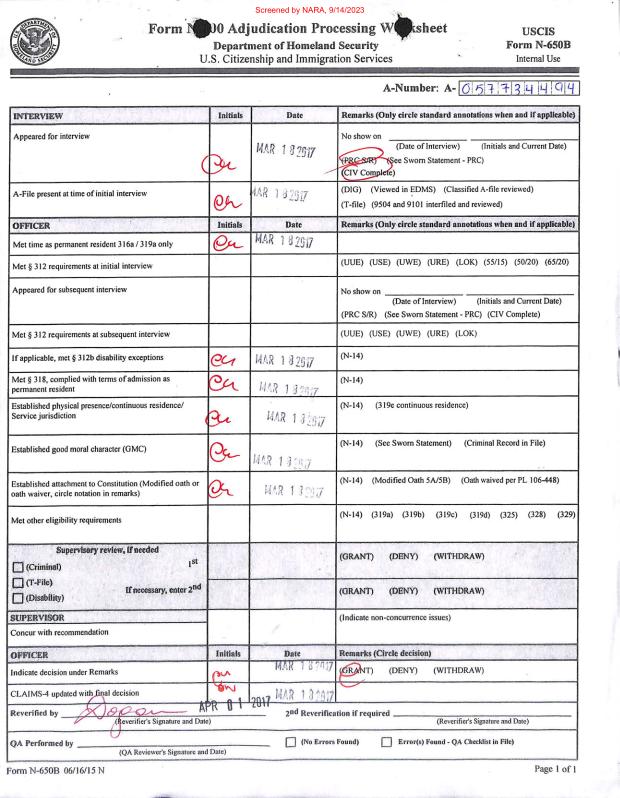 Screened by NARA, 9/14/2023
Form N 00 Adjudication Processing W ksheet
Department of Homeland Security
U.S. Citizenship and Immigration Services
USCIS
Form N-650B
Internal Use
A-Number: A- 057734494
INTERVIEW Initials Date Remarks (Only circle standard annotations when and if applicable)
Appeared for interview MAR 18 2017 No show on
(Date of Interview) (Initials and Current Date)
(PRC S/R) (See Sworn Statement - PRC)
(CIV Complete)
A-File present at time of initial interview MAR 18 2017 (DIG) (Viewed in EDMS) (Classified A-file reviewed)
(T-file) (9504 and 9101 interfiled and reviewed)
OFFICER Initials Date Remarks (Only circle standard annotations when and if applicable)
Met time as permanent resident 316a / 319a only MAR 18 2017
Met § 312 requirements at initial interview (UUE) (USE) (UWE) (URE) (LOK) (55/15) (50/20) (65/20)
Appeared for subsequent interview No show on
(Date of Interview) (Initials and Current Date)
(PRC S/R) (See Sworn Statement - PRC) (CIV Complete)
Met § 312 requirements at subsequent interview (UUE) (USE) (UWE) (URE) (LOK)
If applicable, met § 312b disability exceptions MAR 18 2017 (N-14)
Met § 318, complied with terms of admission as
permanent resident MAR 18 2017 (N-14)
Established physical presence/continuous residence/
Service jurisdiction MAR 18 2017 (N-14) (319e continuous residence)
Established good moral character (GMC) MAR 18 2017 (N-14) (See Sworn Statement) (Criminal Record in File)
Established attachment to Constitution (Modified oath or
oath waiver, circle notation in remarks) MAR 18 2017 (N-14) (Modified Oath 5A/5B) (Oath waived per PL 106-448)
Met other eligibility requirements (N-14) (319a) (319b) (319c) (319d) (325) (328) (329)
Supervisory review, if needed
(Criminal) 1st (GRANT) (DENY) (WITHDRAW)
(T-File)
(Disability) If necessary, enter 2nd (GRANT) (DENY) (WITHDRAW)
SUPERVISOR (Indicate non-concurrence issues)
Concur with recommendation
OFFICER Initials Date Remarks (Circle decision)
Indicate decision under Remarks MAR 18 2017 (GRANT) (DENY) (WITHDRAW)
CLAIMS-4 updated with final decision MAR 18 2017
Reverified by APR 01 2017 2nd Reverification if required
(Reverifier's Signature and Date) (Reverifier's Signature and Date)
QA Performed by (No Errors Found) Error(s) Found - QA Checklist in File)
(QA Reviewer's Signature and Date)
Form N-650B 06/16/15 N Page 1 of 1